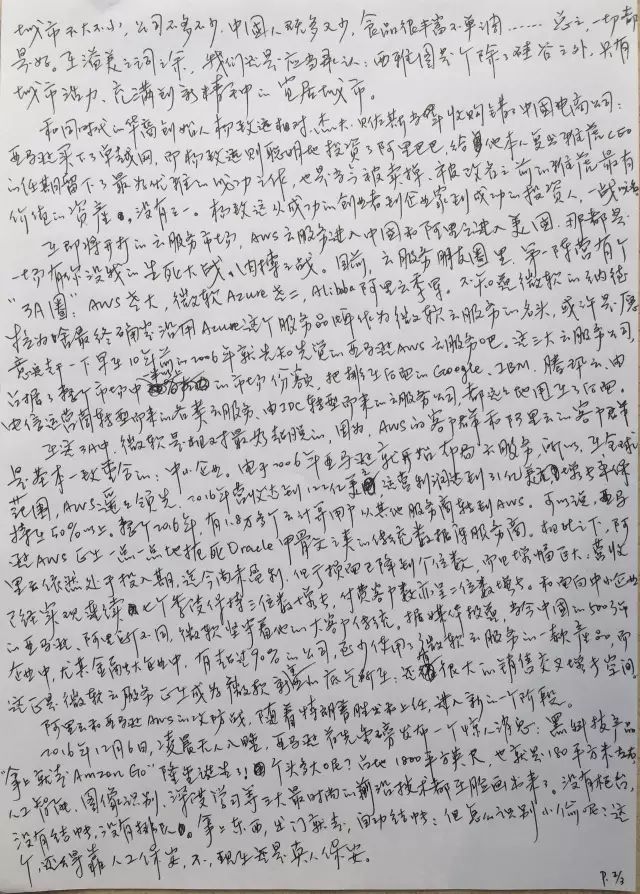 城市不大不小，公司不多不少，中国人既多又少，食品很丰富不单调……总之，一切都
是好。在溢美之词之余，我们还是应当承认：西雅图是个除了硅谷之外，只有
城市活力、充满创新精神的宜居城市。
和同时代的华裔创始人杨致远相对，杰夫·贝佐斯当年收购了中国电商公司：
亚马逊买下了卓越网，即杨致远则聪明地投资了阿里巴巴，给他本人及出雅虎CEO
的任期留下了最为优雅的成功之作，也是当今被卖掉、被改名之前的雅虎最有
价值的资产，没有之一。杨致远从成功的创业者到企业家到成功的投资人，一战
在即将开打的云服务市场，AWS云服务进入中国和阿里云进入美国，那都是
一场有你没我的生死大战、肉搏之战。目前，云服务朋友圈里，第一阵营有个
"3A圈"：AWS老大，微软Azure老二，Alibba阿里云季军。不知是微软的纳德
拉为啥最终确定沿用Azure这个服务品牌作为微软云服务的名头，或许是愿
意致敬一下早在10年前的2006年就先知先觉的亚马逊AWS云服务吧。这三大云服务公司，
占据了整个市场中的市场份额，把排在后面的Google、IBM、腾讯云、由
电信运营商转型而来的各类云服务、由IDC转型而来的云服务公司，都远远地甩在了后面。
在这3A中，微软是相对最为超脱的，因为，AWS的客户群和阿里云的客户群
是基本一致重合的：中小企业。由于2006年亚马逊就开始布局云服务，所以，在全球
范围，AWS遥遥领先，2016年营收达到122亿美元，运营利润达到31亿美元，增长率保
持在50%以上。整个2016年，有1.8万多个云计算用户从其他服务商转到AWS。可以说，亚马
逊AWS正在一点一点地扼死Oracle甲骨文之类的传统数据库服务商。相比之下，阿
里云依然处于投入期，迄今尚未盈利，但亏损面已降到个位数，而且增幅巨大，营收
已经实现连续七个季度保持三位数增长，付费客户数亦呈三位数增长。和面向中小企业
的亚马逊、阿里巴巴不同，微软坚守着他的大客户传统。据媒体披露，当今中国的500强
企业中，尤其金融大企业中，有超过90%的公司，至少使用了微软云服务的一款产品，而
这正是微软云服务正在成为微软新的底气所在：还有很大的销售交叉增长空间。
阿里云和亚马逊AWS的攻防战，随着特朗普胜出和上任，进入新的一个阶段。
2016年12月6日，凌晨天人入睡，亚马逊首先宣布发布一个惊人消息：黑科技产品
"拿上就走Amazon Go"降生诞世了！个头多大呢？占地1800平方英尺，也就是180平方米左右
人工智能、图像识别、深度学习等三大最时尚的前沿技术都在脸面出来了。没有柜台，
没有结账，没有排队。拿上东西，出门就走，自动结账；但怎么识别小偷呢？这
个，还得靠人工保安，不，现在还是真人保安。
P. 2/3